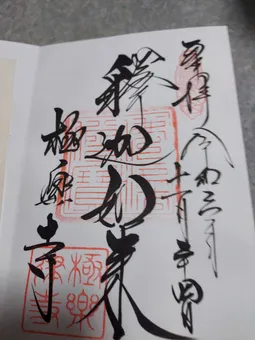 奉拝
令和三年
十一月二十四日
釋迦如来
極楽寺
極樂寺